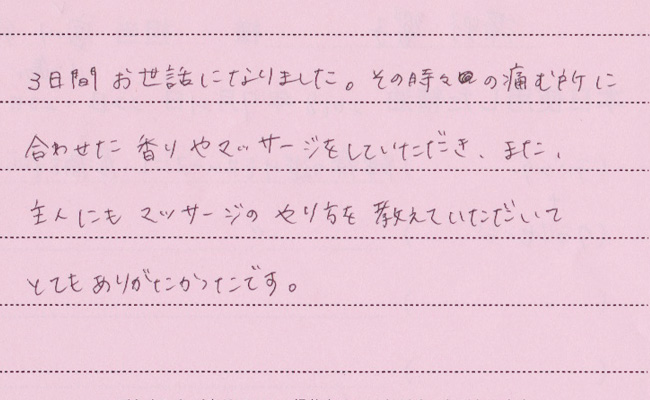 3日間お世話になりました。その時々の痛む所に
合わせた香りやマッサージをしていただき、また、
主人にもマッサージのやり方を教えていただいて
とてもありがたかったです。